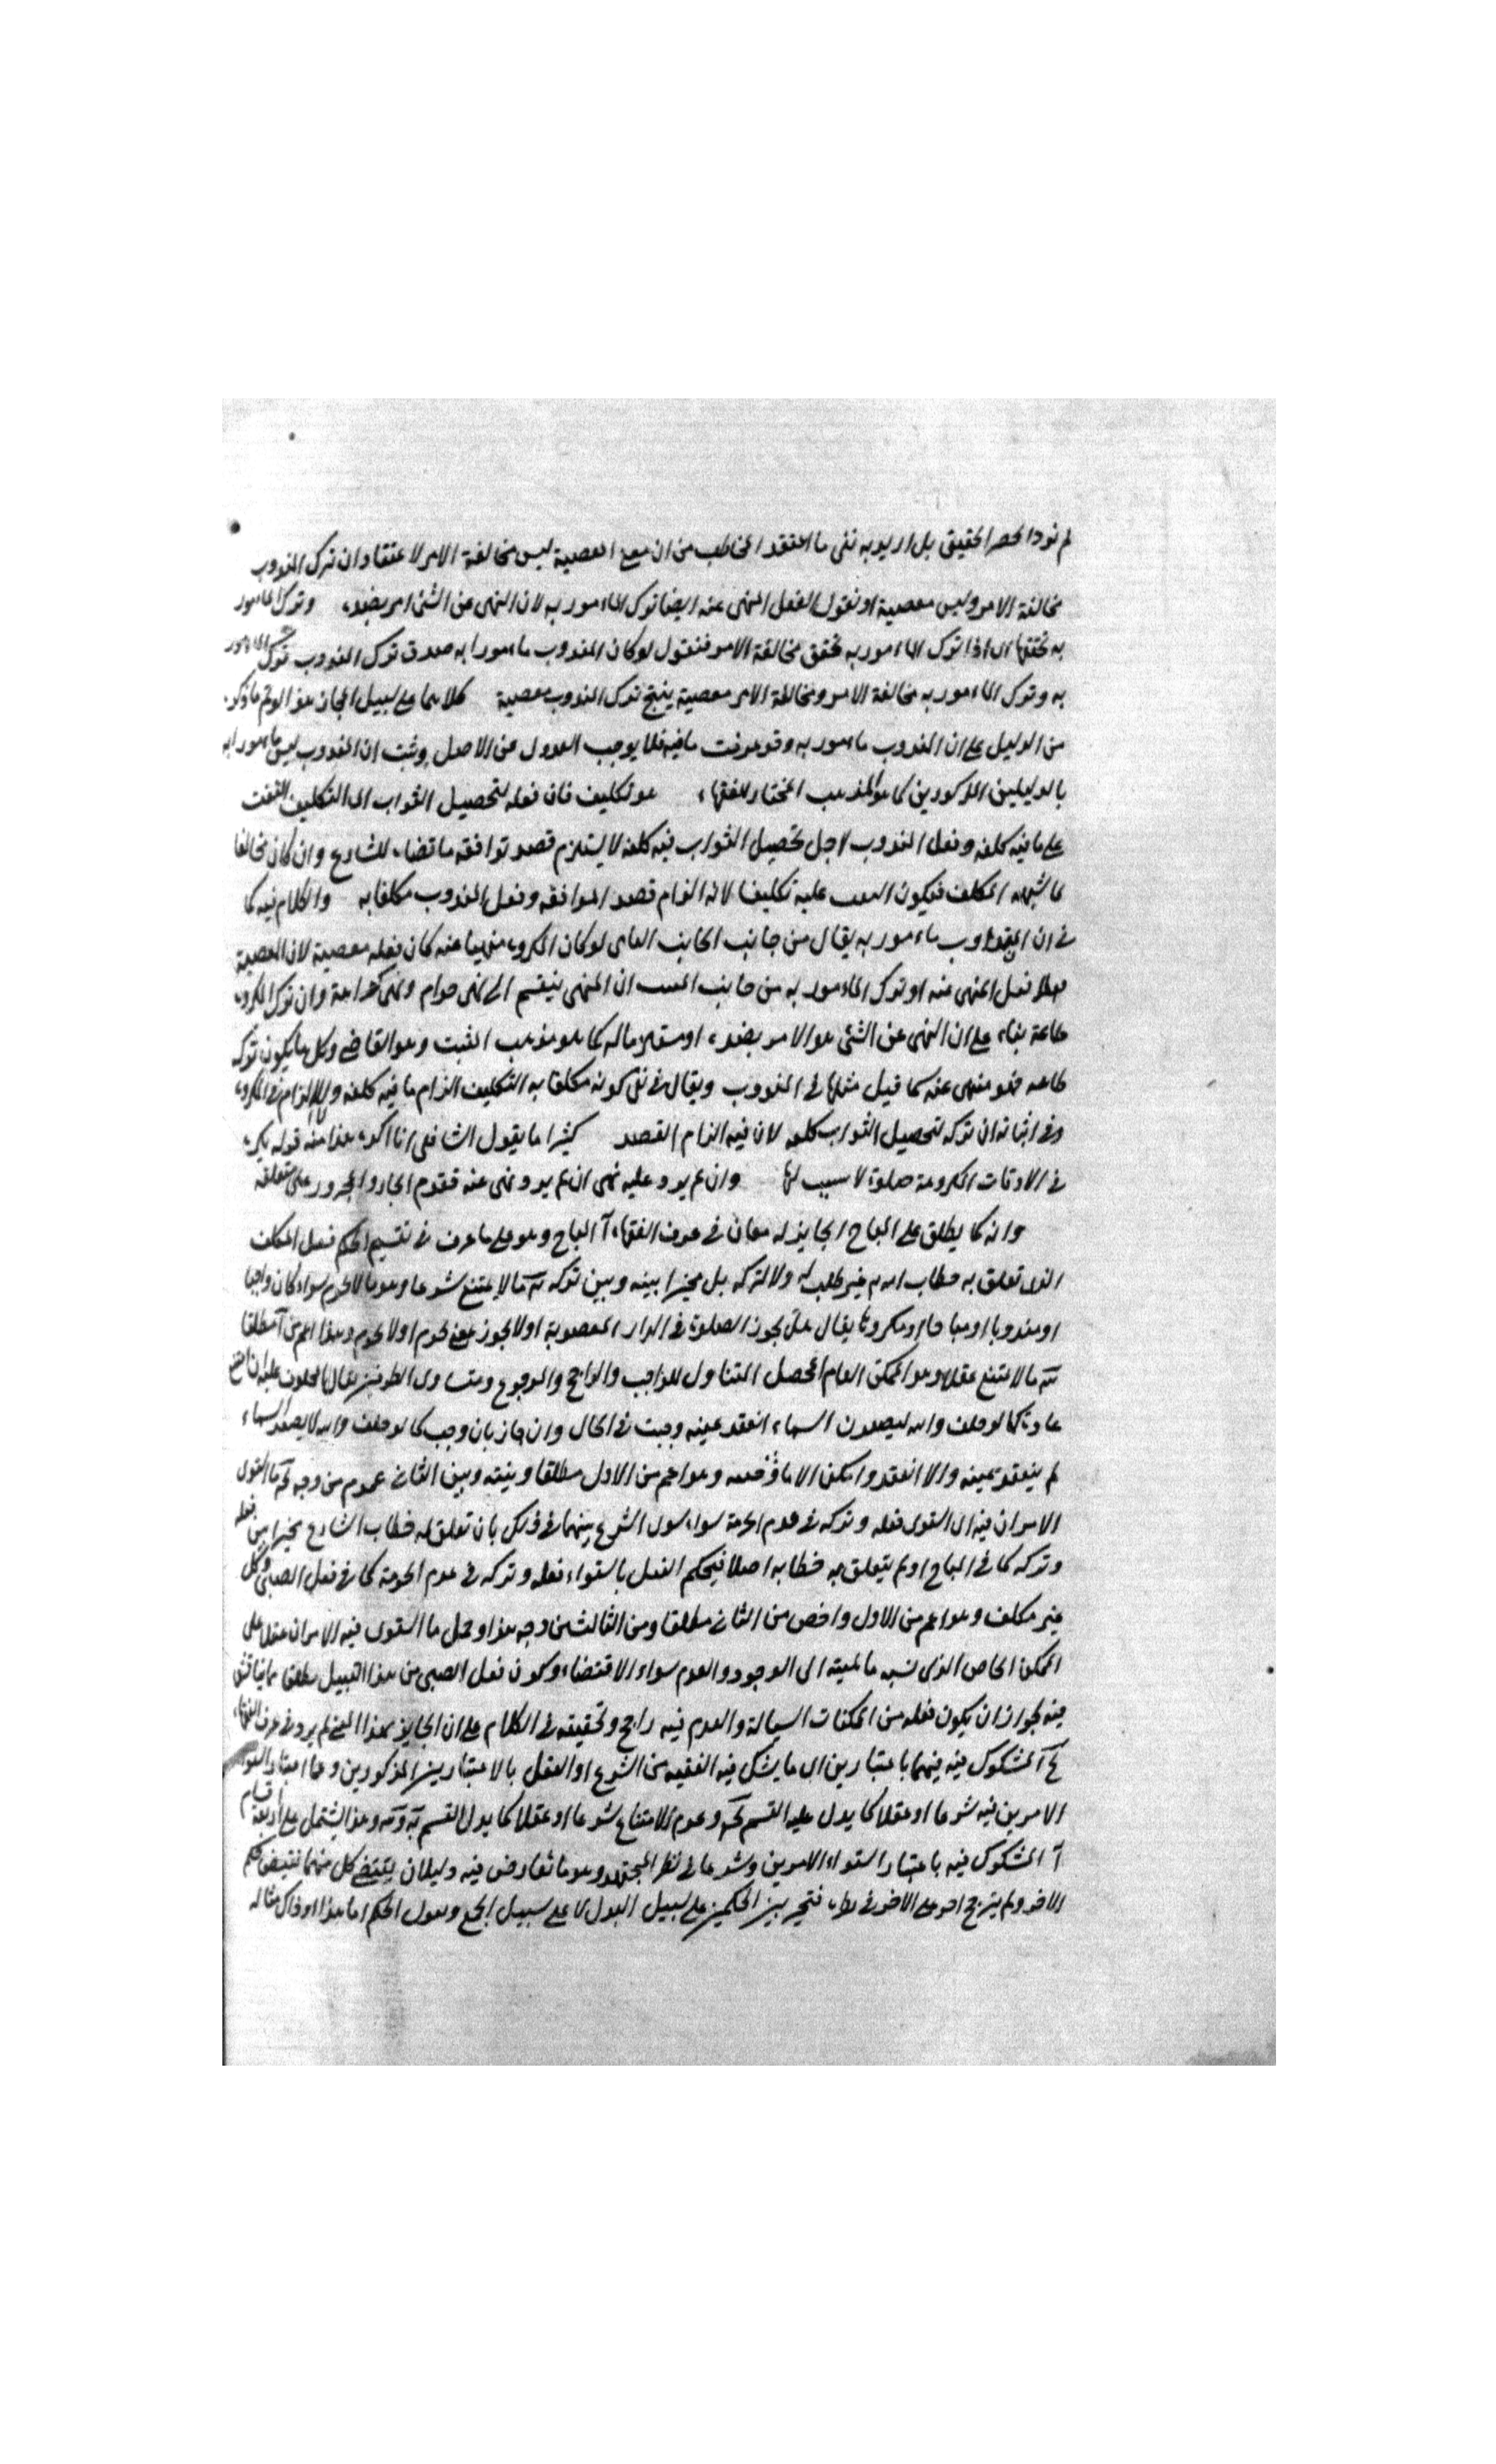 لم نرد الحصر الحقيقي بل اريد به نفى ما اعتقد المخاطب من ان معنى المعصية ليس مخالفة الامر لاعتقاد ان ترك المندوب
مخالفة الامر وليس معصية او نقول الفعل المنهى عنه ايضا ترك الماءمور به لان النهى عن الشئ امر بضده وترك الماءمور
به تحققها اى اذا ترك الماءمور به تحقق مخالفة الامر فنقول لو كان المندوب ماءمورا به صدق ترك المندوب ترك الماءمور
به وترك الماءمور به مخالفة الامر ومخالفة الامر معصية ينتج ترك المندوب معصية كلاهما على سبيل المجاز هذا ما ذكره
من الدليل على ان المندوب ماءمور به وقد عرفت ما فيه فلا يوجب العدول عن الاصل وثبت ان المندوب ليس ماءمورا به
بالدليلين المذكورين كما هو المذهب المختار للفقهاء هو تكليف فان فعله لتحصيل الثواب اى التكليف
على ما فيه كلفة وفعل المندوب لاجل تحصيل الثواب فيه كلفة لا يستلزم قصد توافقه ما قضاه الشارع وان كان مخالفا
لما المكلف فيكون عليه تكليفا لانه الزام قصد الموافقة وفعل المندوب مكلفا به والكلام فيه كما
فى ان المندوب ماءمور به يقال من جانب لو كان المكروه منهيا عنه كان فعله معصية لان المعصية
فعل المنهى عنه او ترك الماءمور به من جانب ان المنهى ينقسم الى نهى حرام ونهى كراهة وان ترك المكروه
طاعة بناء على ان النهى عن الشئ هو الامر بضده او مستلزما له كما هو مذهب المثبت وهو القاضى وكل ما يكون تركه
طاعة فهو منهى عنه كما قيل مثلها فى المندوب ويقال فى نفى كونه مكلفا به التكليف الزام ما فيه كلفة ولا الزام فى المكروه
وفى اثباته ان تركه لتحصيل الثواب كلفة لان فيه الزام القصد كثيرا ما يقول الشافعى انا اكره هذا منه قوله يكره
فى الاوقات المكروهة صلوة لا سبب لها وان لم يرد عليه نهى ان لم يرد نهى عنه فقدم الجار والمجرور على متعلقه
وانه كما يطلق على المباح الجايز له معان فى عرف الفقهاء آ المباح وهو على ما عرف فى تقسيم الحكم فعل المكلف
الذى تعلق به خطاب الله من غير طلب له ولا لتركه بل مخيرا بينه وبين تركه ب ما لا يمتنع شرعا وهو ما لا يحرم سواء كان واجبا
او مندوبا او مباحا او مكروها يقال هل يجوز الصلوة فى الدار المغصوبة او لا يجوز بمعنى يحرم او لا يحرم وهذا اعم من آ مطلقا
ج ما لا يمتنع عقلا وهو الممكن العام المحصل المتناول للواجب والراجح والمرجوح ومتساوى الطرفين يقال المحلوف عليه ان امتنع
عادة كما لو حلف والله ليصعدن السماء انعقد يمينه وجبت فى الحال وان جاز بان وجب كما لو حلف والله لا يصعد السماء
لم ينعقد يمينه والا انعقد وامكن وهو اعم من الاول مطلقا وبينه وبين الثانى عموم من وجه د ما استوى
الامران فيه اى استوى فعله وتركه فى عدم الحرمة سواء سوى الشرع بينهما فى ذلك بان تعلق له خطاب الشارع مخيرا بين فعله
وتركه كما فى المباح او لم يتعلق به خطابه اصلا فيحكم العقل باستواء فعله وتركه فى عدم الحرمة كما فى فعل الصبى وكل
غير مكلف وهو اعم من الاول واخص من الثانى مطلقا ومن الثالث من وجه هذا وحمل ما استوى فيه الامران عقلا على
الممكن الخاص الذى نسبة ماهيته الى الوجود والعدم سواء لا اقتضاء وكون فعل الصبى من هذا القبيل مطلقا مما يناقش
فيه لجواز ان يكون فعله من الممكنات السيالة والعدم فيه راجح وتحقيقه فى الكلام على ان الجايز بهذا المعنى لم يرد فى عرف الفقهاء
المشكوك فيه فيهما باعتبارين اى ما يشك فيه الفقيه من الشرع او العقل بالاعتبارين المذكورين وهما اعتبار استواء
الامرين فيه شرعا او عقلا كما يدل عليه القسم وعدم الامتناع شرعا او عقلا كما يدل القسم وهذا يشتمل على اربعة اقسام
آ المشكوك فيه باعتبار استواء الامرين وشرعا فى نظر المجتهد وهو ما تعارض فيه دليلان يقتضى كل منهما نقيض حكم
الاخر ولم يترجح احد على الاخر فى راءيه فتخير بين الحكمين على سبيل البدل لا على سبيل الجمع ويقول الحكم اما هذا او ذاك مثاله